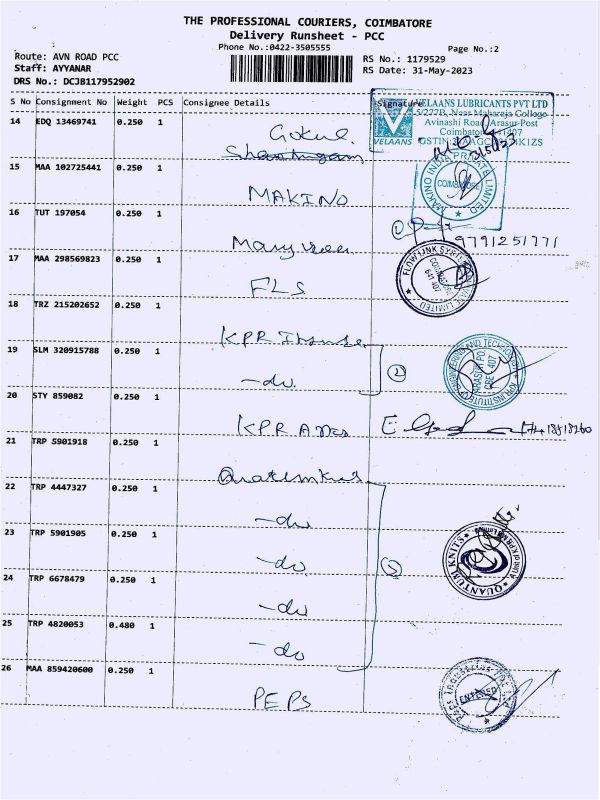 THE PROFESSIONAL COURIERS, COIMBATORE
Delivery Runsheet - PCC
Phone No.:0422-3505555
Page No.:2
Route: AVN ROAD PCC
Staff: AYYANAR
DRS No.: DCJB117952902
RS No.: 1179529
RS Date: 31-May-2023
S No Consignment No Weight PCS Consignee Details Signature
VELAANS LUBRICANTS PVT LTD
Avinashi Road, Arasur Post
VELAANS
14 EDQ 13469741 0.250 1 Gokul
15 MAA 102725441 0.250 1 MAKINO
MAKINO INDIA PRIVATE LIMITED
COIMBATORE
16 TUT 197054 0.250 1
9791251771
17 MAA 298569823 0.250 1 FLS
641 407
18 TRZ 215202652 0.250 1 KPR
19 SLM 320915788 0.250 1 -do. 2
20 STY 859082 0.250 1 KPR
21 TRP 5901918 0.250 1
22 TRP 4447327 0.250 1 -do
23 TRP 5901905 0.250 1 -do. 5
QUANTUM KNITS
24 TRP 6678479 0.250 1 -do
25 TRP 4820053 0.480 1 -do
26 MAA 859420600 0.250 1 PEPS